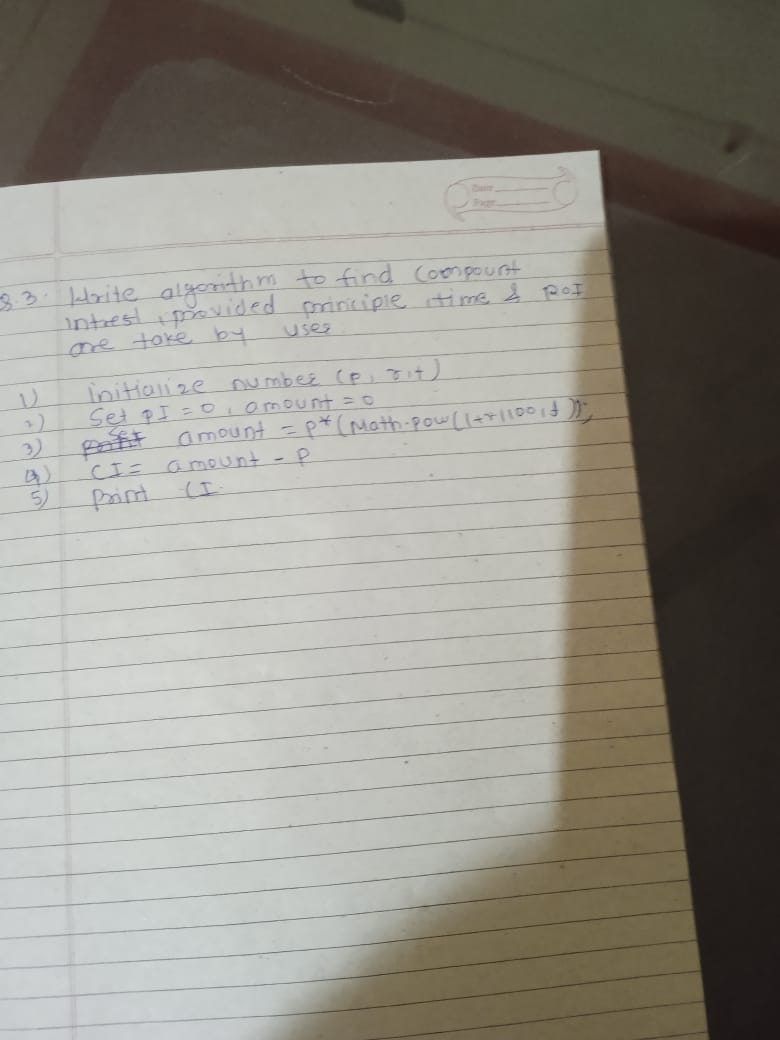 Date
Page
Q.3. Write algorithm to find Compount
intrest, provided principle, time & ROI
are take by user
1) initialize number (p, r, t)
2) Set PI = 0, amount = 0
3) Set amount = P*(Math.pow(1+r/100,t));
4) CI = amount - P
5) Print CI.